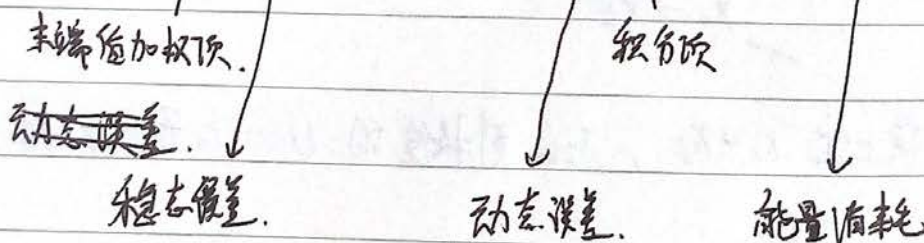 末端值加权项. 积分项
动态误差.
稳态误差. 动态误差. 能量消耗